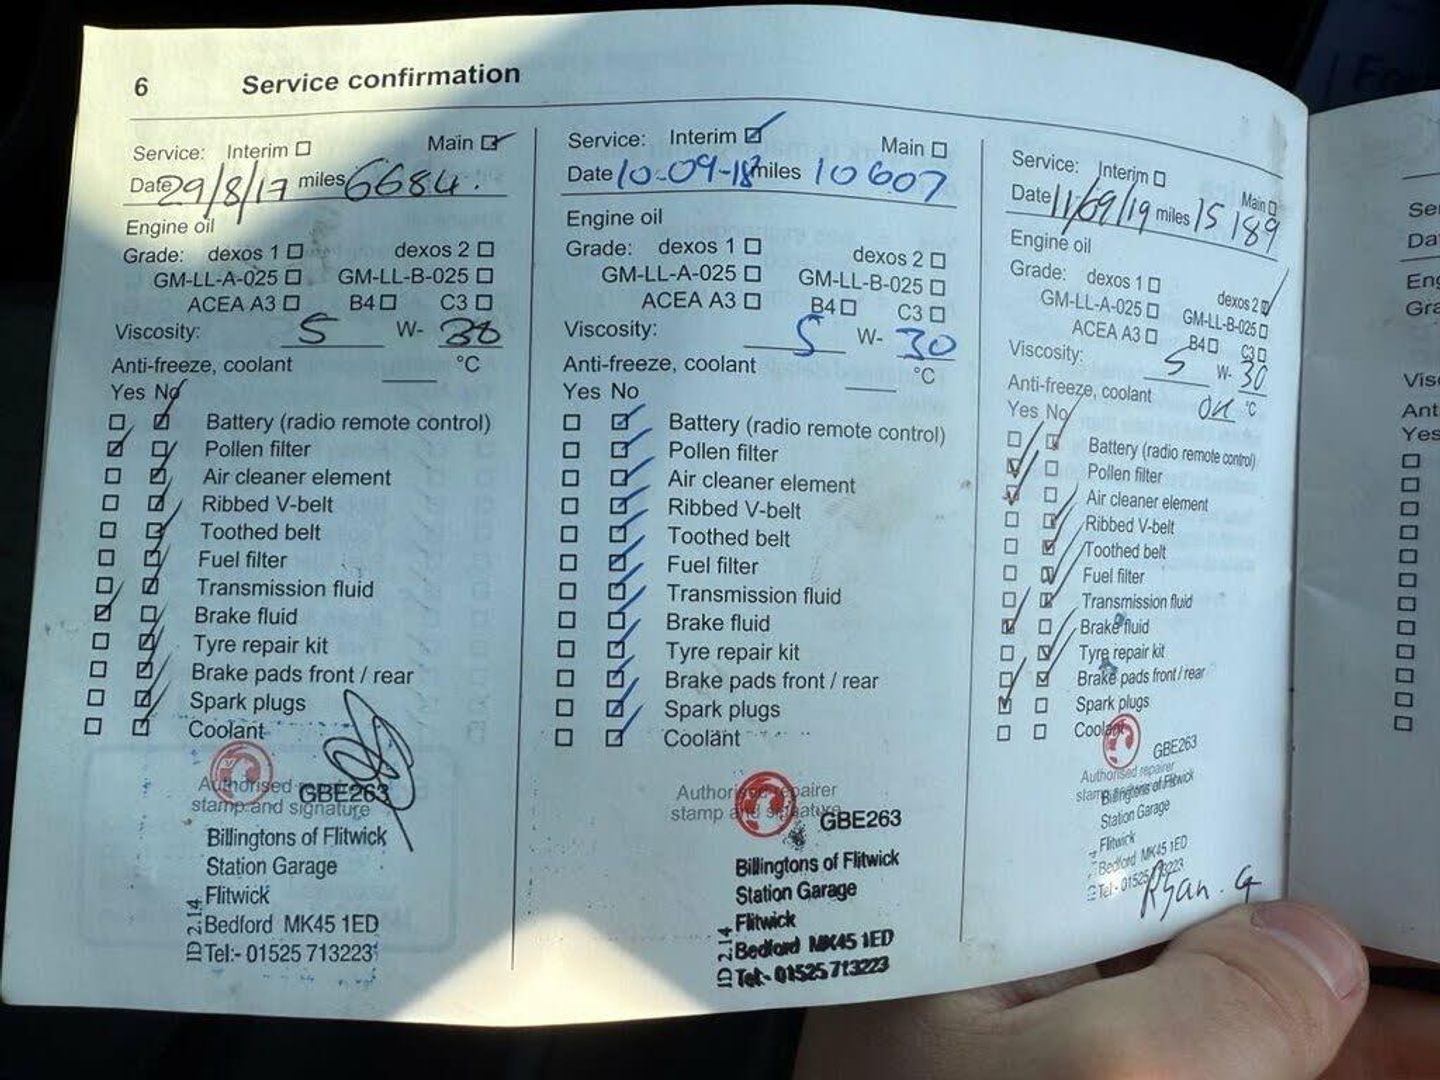 6 Service confirmation
Service: Interim ☐ Main ☑
Date 29/8/17 miles 6684.
Engine oil
Grade: dexos 1 ☐ dexos 2 ☐
GM-LL-A-025 ☐ GM-LL-B-025 ☐
ACEA A3 ☐ B4 ☐ C3 ☐
Viscosity: 5 W- 30
Anti-freeze, coolant ____ °C
Yes No
☐ ☑ Battery (radio remote control)
☑ ☐ Pollen filter
☐ ☑ Air cleaner element
☐ ☑ Ribbed V-belt
☐ ☑ Toothed belt
☐ ☑ Fuel filter
☐ ☑ Transmission fluid
☑ ☐ Brake fluid
☐ ☑ Tyre repair kit
☐ ☑ Brake pads front / rear
☐ ☑ Spark plugs
☐ ☑ Coolant
Authorised
stamp and signature
GBE263
Billingtons of Flitwick
Station Garage
Flitwick
Bedford MK45 1ED
Tel:- 01525 713223
ID 2.14
Service: Interim ☑ Main ☐
Date 10-09-18 miles 10607
Engine oil
Grade: dexos 1 ☐ dexos 2 ☐
GM-LL-A-025 ☐ GM-LL-B-025 ☐
ACEA A3 ☐ B4 ☐ C3 ☐
Viscosity: 5 W- 30
Anti-freeze, coolant ____ °C
Yes No
☐ ☑ Battery (radio remote control)
☐ ☑ Pollen filter
☐ ☑ Air cleaner element
☐ ☑ Ribbed V-belt
☐ ☑ Toothed belt
☐ ☑ Fuel filter
☐ ☑ Transmission fluid
☐ ☑ Brake fluid
☐ ☑ Tyre repair kit
☐ ☑ Brake pads front / rear
☐ ☑ Spark plugs
☐ ☑ Coolant
Authorised repairer
stamp and signature
GBE263
Billingtons of Flitwick
Station Garage
Flitwick
Bedford MK45 1ED
Tel:- 01525 713223
ID 2.14
Service: Interim ☐ Main ☐
Date 11/09/19 miles 15189
Engine oil
Grade: dexos 1 ☐ dexos 2 ☑
GM-LL-A-025 ☐ GM-LL-B-025 ☐
ACEA A3 ☐ B4 ☐ C3 ☐
Viscosity: 5 W- 30
Anti-freeze, coolant °C
Yes No
☐ ☑ Battery (radio remote control)
☑ ☐ Pollen filter
☑ ☐ Air cleaner element
☐ ☑ Ribbed V-belt
☐ ☑ Toothed belt
☐ ☑ Fuel filter
☐ ☑ Transmission fluid
☑ ☐ Brake fluid
☐ ☑ Tyre repair kit
☐ ☑ Brake pads front / rear
☑ ☐ Spark plugs
☐ ☐ Coolant
Authorised repairer
GBE263
Billingtons of Flitwick
Station Garage
Flitwick
Bedford MK45 1ED
Tel:- 01525 713223
Ryan. G
Ser
Da
Eng
Gra
Visc
Ant
Yes